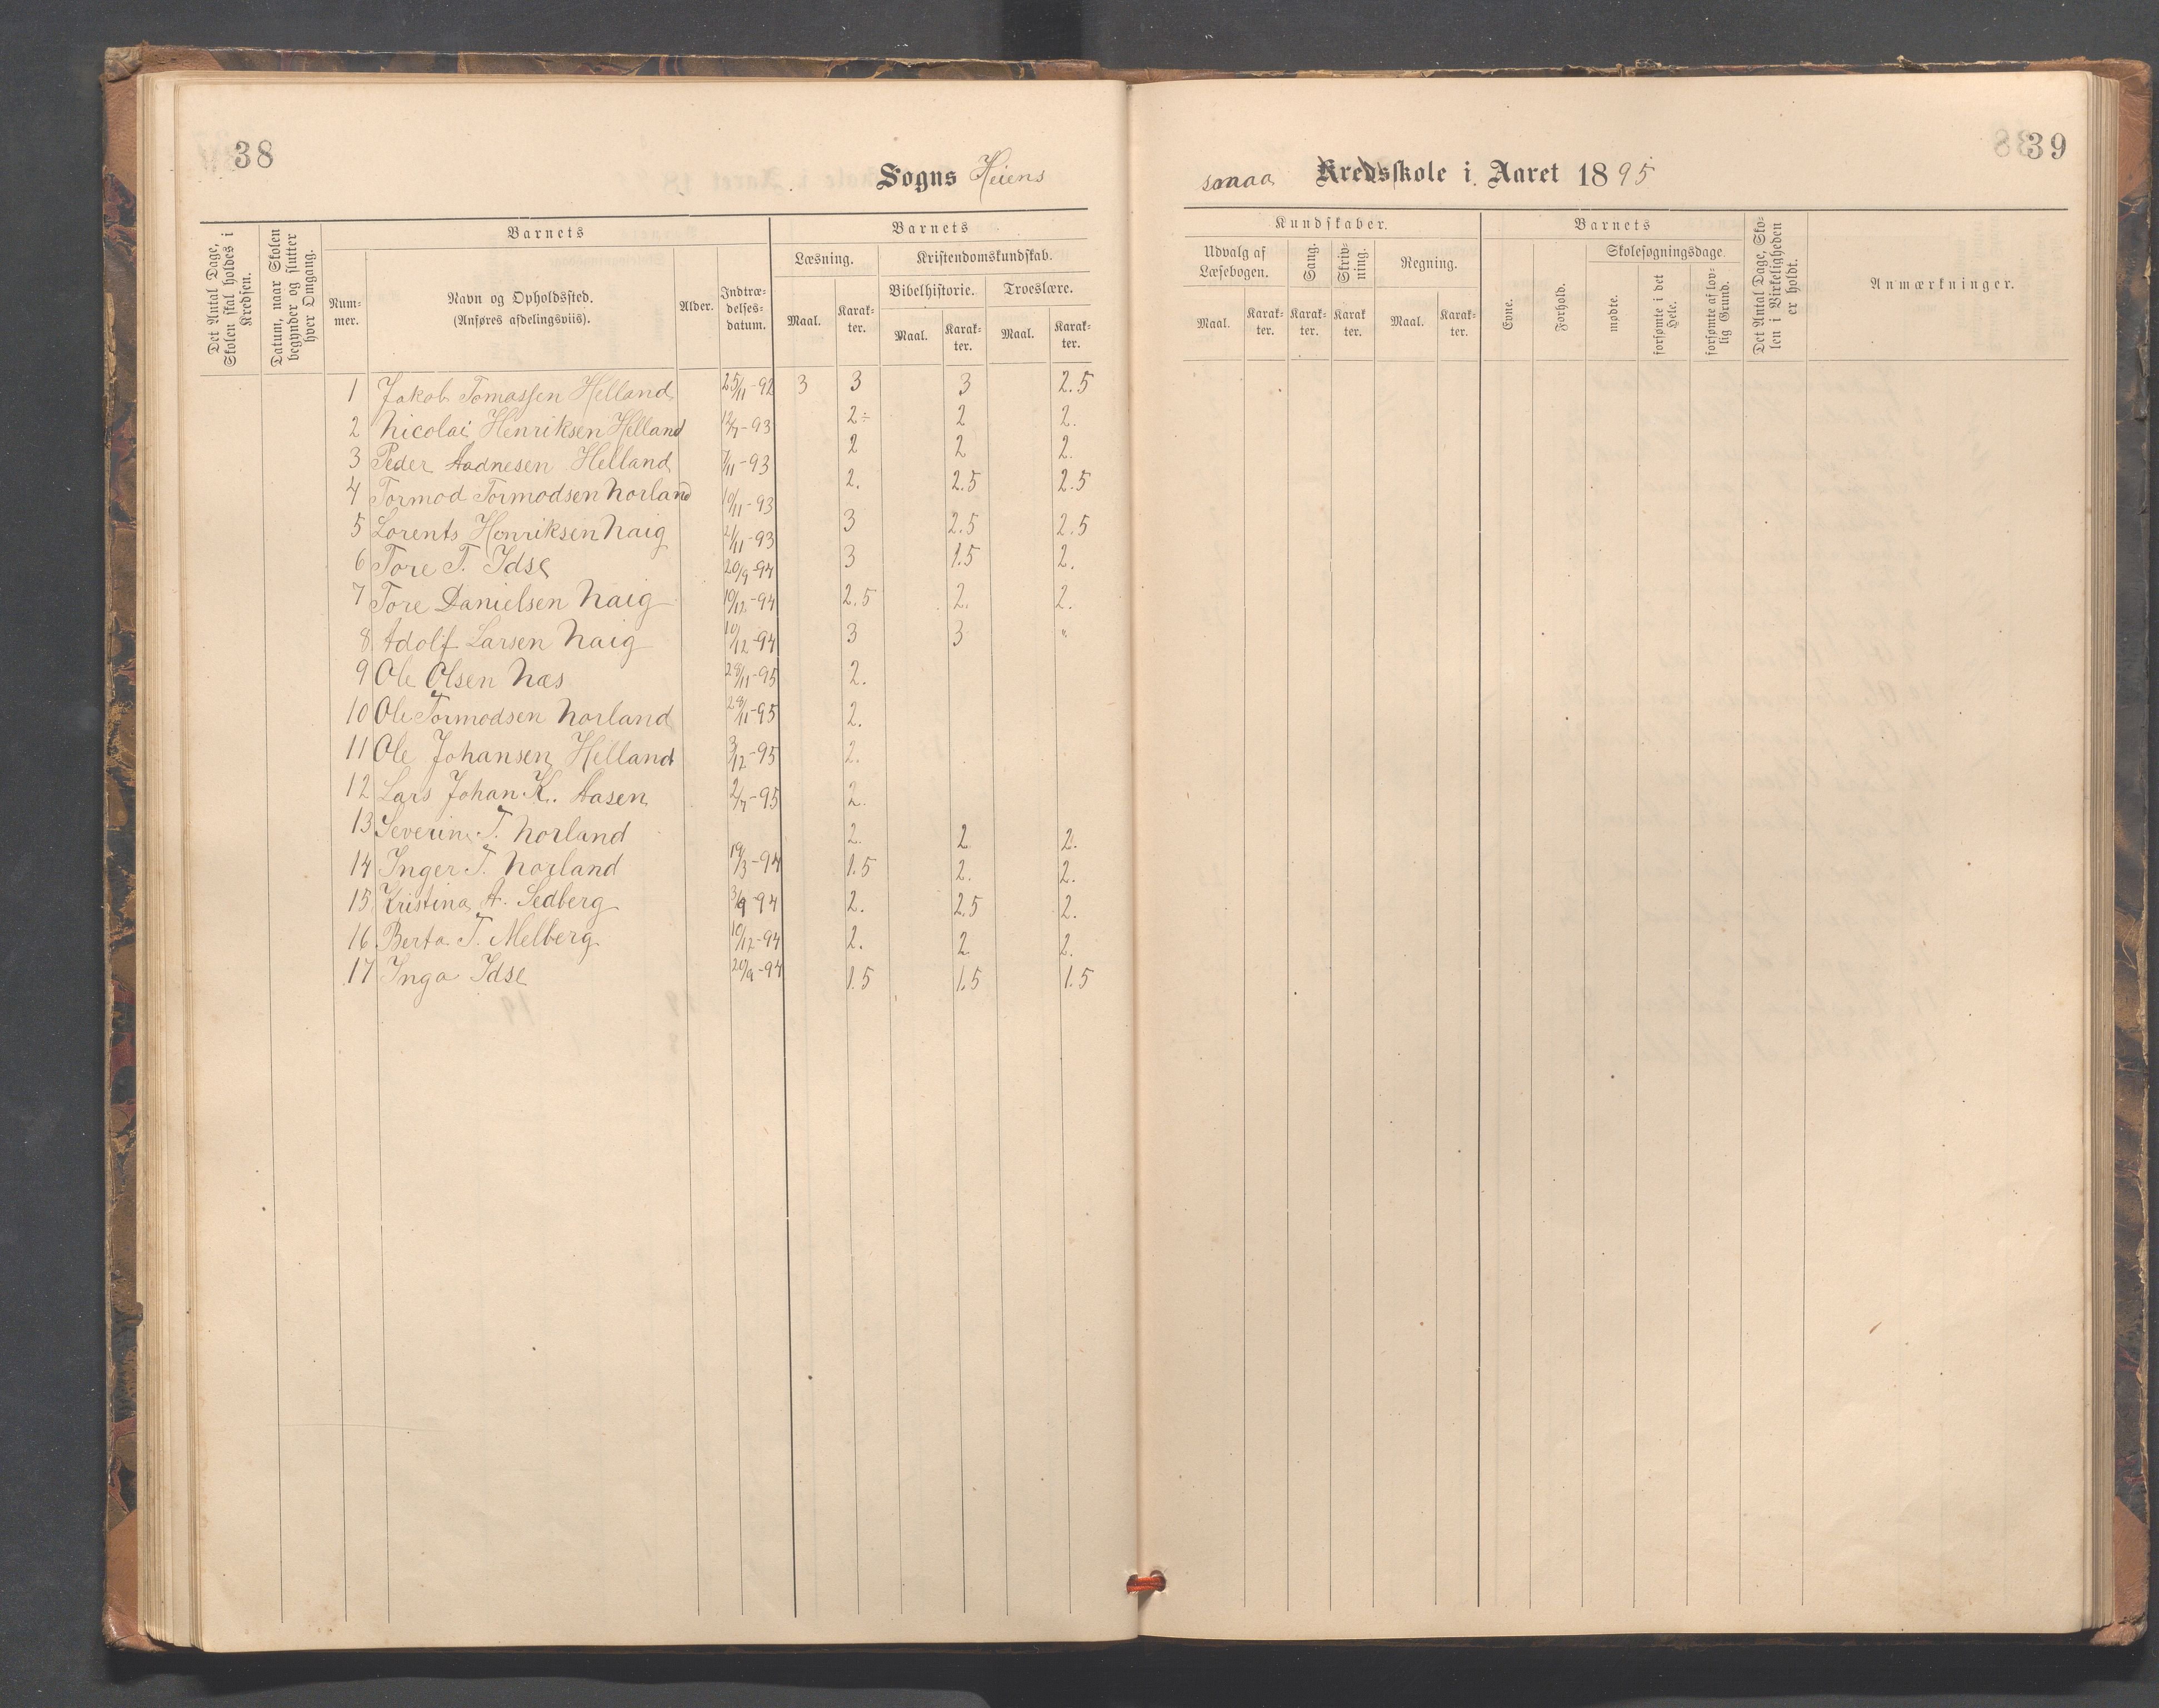 38
Sogns Heiens
Det Antal Dage, Skolen skal holdes i Kredsen.
Datum, naar Skolen begynder og slutter hver Omgang.
Barnets
Num-mer.
Navn og Opholdssted.
(Anføres afdelingsviis).
Alder.
Indtræ-delses-datum.
Barnets
Læsning.
Maal.
Karak-ter.
Kristendomskundskab.
Bibelhistorie.
Troeslære.
Maal.
Karak-ter.
Maal.
Karak-ter.
1 Jakob Tomassen Helland 25/11-92 3 3 3 2.5
2 Nicolai Henriksen Helland 12/7-93 2÷ 2 2.
3 Peder Aadnesen Helland 7/11-93 2 2 2.
4 Tormod Tormodsen Norland 10/11-93 2. 2.5 2.5
5 Lorents Henriksen Haig 21/11-93 3 2.5 2.5
6 Tore T. Idse 20/9-94 3 1.5 2.
7 Tore Danielsen Haig 10/12-94 2.5 2. 2.
8 Adolf Larsen Haig 10/12-94 3 3 "
9 Ole Olsen Næs 28/11-95 2.
10 Ole Tormodsen Norland 28/11-95 2.
11 Ole Johansen Helland 3/12-95 2.
12 Lars Johan K. Aasen 2/7-95 2.
13 Severine T. Norland 2. 2 2.
14 Inger T. Norland 19/3-94 1.5 2. 2.
15 Kristina A. Sedberg 3/9-94 2. 2.5 2.
16 Berta T. Melberg 10/12-94 2. 2 2.
17 Inga Idse 20/9-94 1.5 1.5 1.5
39
smaa Kredsskole i Aaret 1895
Kundskaber.
Udvalg af Læsebogen.
Maal.
Karak-ter.
Sang.
Karak-ter.
Skriv-ning.
Karak ter.
Regning.
Maal.
Karak-ter.
Barnets
Evne.
Forhold.
Skolesøgningsdage.
mødte.
forsømte i det Hele.
forsømte af lov-lig Grund.
Det Antal Dage, Sko-len i Virkeligheden er holdt.
Anmærkninger.